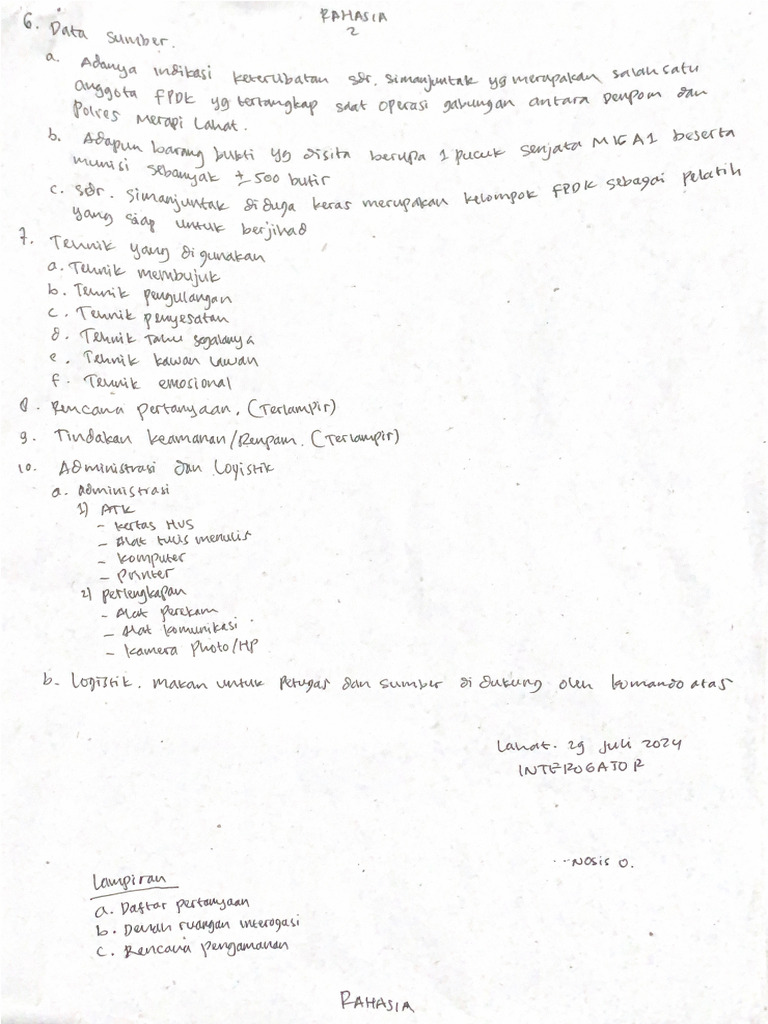 RAHASIA
2
6. Data Sumber.
a. Adanya indikasi keterlibatan sdr. Simanjuntak yg merupakan salah satu
anggota FPDK yg tertangkap saat operasi gabungan antara Denpom dan
Polres Merapi Lahat.
b. Adapun barang bukti yg disita berupa 1 pucuk senjata M16A1 beserta
munisi sebanyak ± 500 butir
c. Sdr. Simanjuntak diduga keras merupakan kelompok FPDK sebagai pelatih
yang siap untuk berjihad
7. Tehnik yang digunakan
a. Tehnik membujuk
b. Tehnik pengulangan
c. Tehnik penyesatan
d. Tehnik Tahu segalanya
e. Tehnik kawan lawan
f. Tehnik emosional
8. Rencana pertanyaan. (Terlampir)
9. Tindakan keamanan/Renpam. (Terlampir)
10. Administrasi dan Logistik
a. administrasi
1) ATK
- kertas HVS
- Alat tulis menulis
- komputer
- printer
2) perlengkapan
- Alat perekam
- Alat komunikasi
- kamera Photo/HP
b. Logistik. makan untuk Petugas dan Sumber di dukung oleh komando atas
Lahat. 29 Juli 2024
INTEROGATOR
Nosis O.
Lampiran
a. Daftar pertanyaan
b. Denah ruangan interogasi
c. Rencana pengamanan
RAHASIA